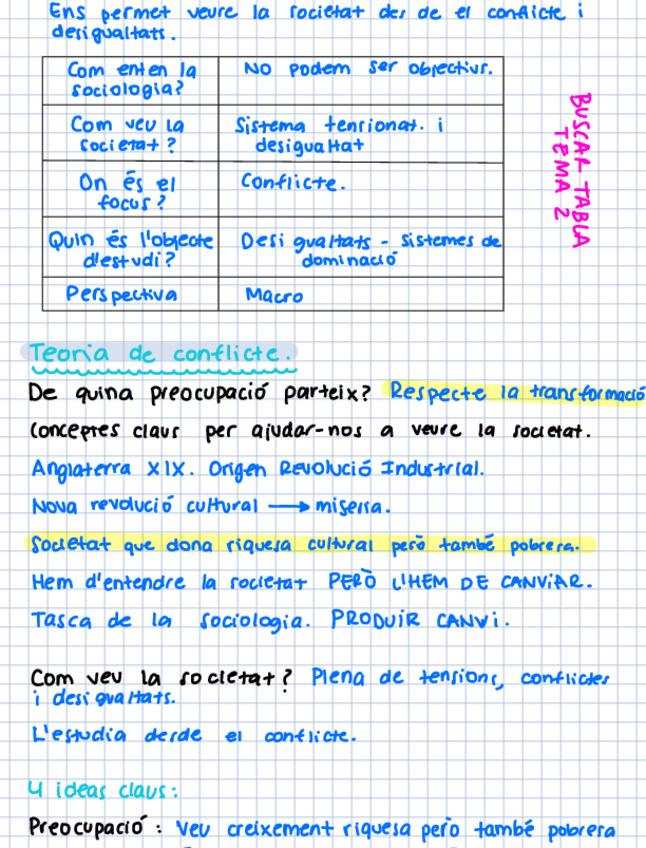 Ens permet veure la societat des de el conflicte i
desigualtats.
Com enten la
sociologia?
No podem ser objectius.
Com veu la
societat?
Sistema tensionat. i
desigualtat
On és el
focus?
Conflicte.
Quin és l'objecte
d'estudi?
Desigualtats - sistemes de
dominació
Perspectiva
Macro
BUSCAR TABLA
TEMA 2
Teoria de conflicte.
De quina preocupació parteix? Respecte la transformació
Conceptes claus per ajudar-nos a veure la societat.
Anglaterra XIX. Origen Revolució Industrial.
Nova revolució cultural → miseria.
Societat que dona riquesa cultural però també pobresa.
Hem d'entendre la societat PERÒ L'HEM DE CANVIAR.
Tasca de la sociologia. PRODUIR CANVI.
Com veu la societat? Plena de tensions, conflictes
i desigualtats.
L'estudia desde el conflicte.
4 ideas claus:
Preocupació: Veu creixement riquesa però també pobresa